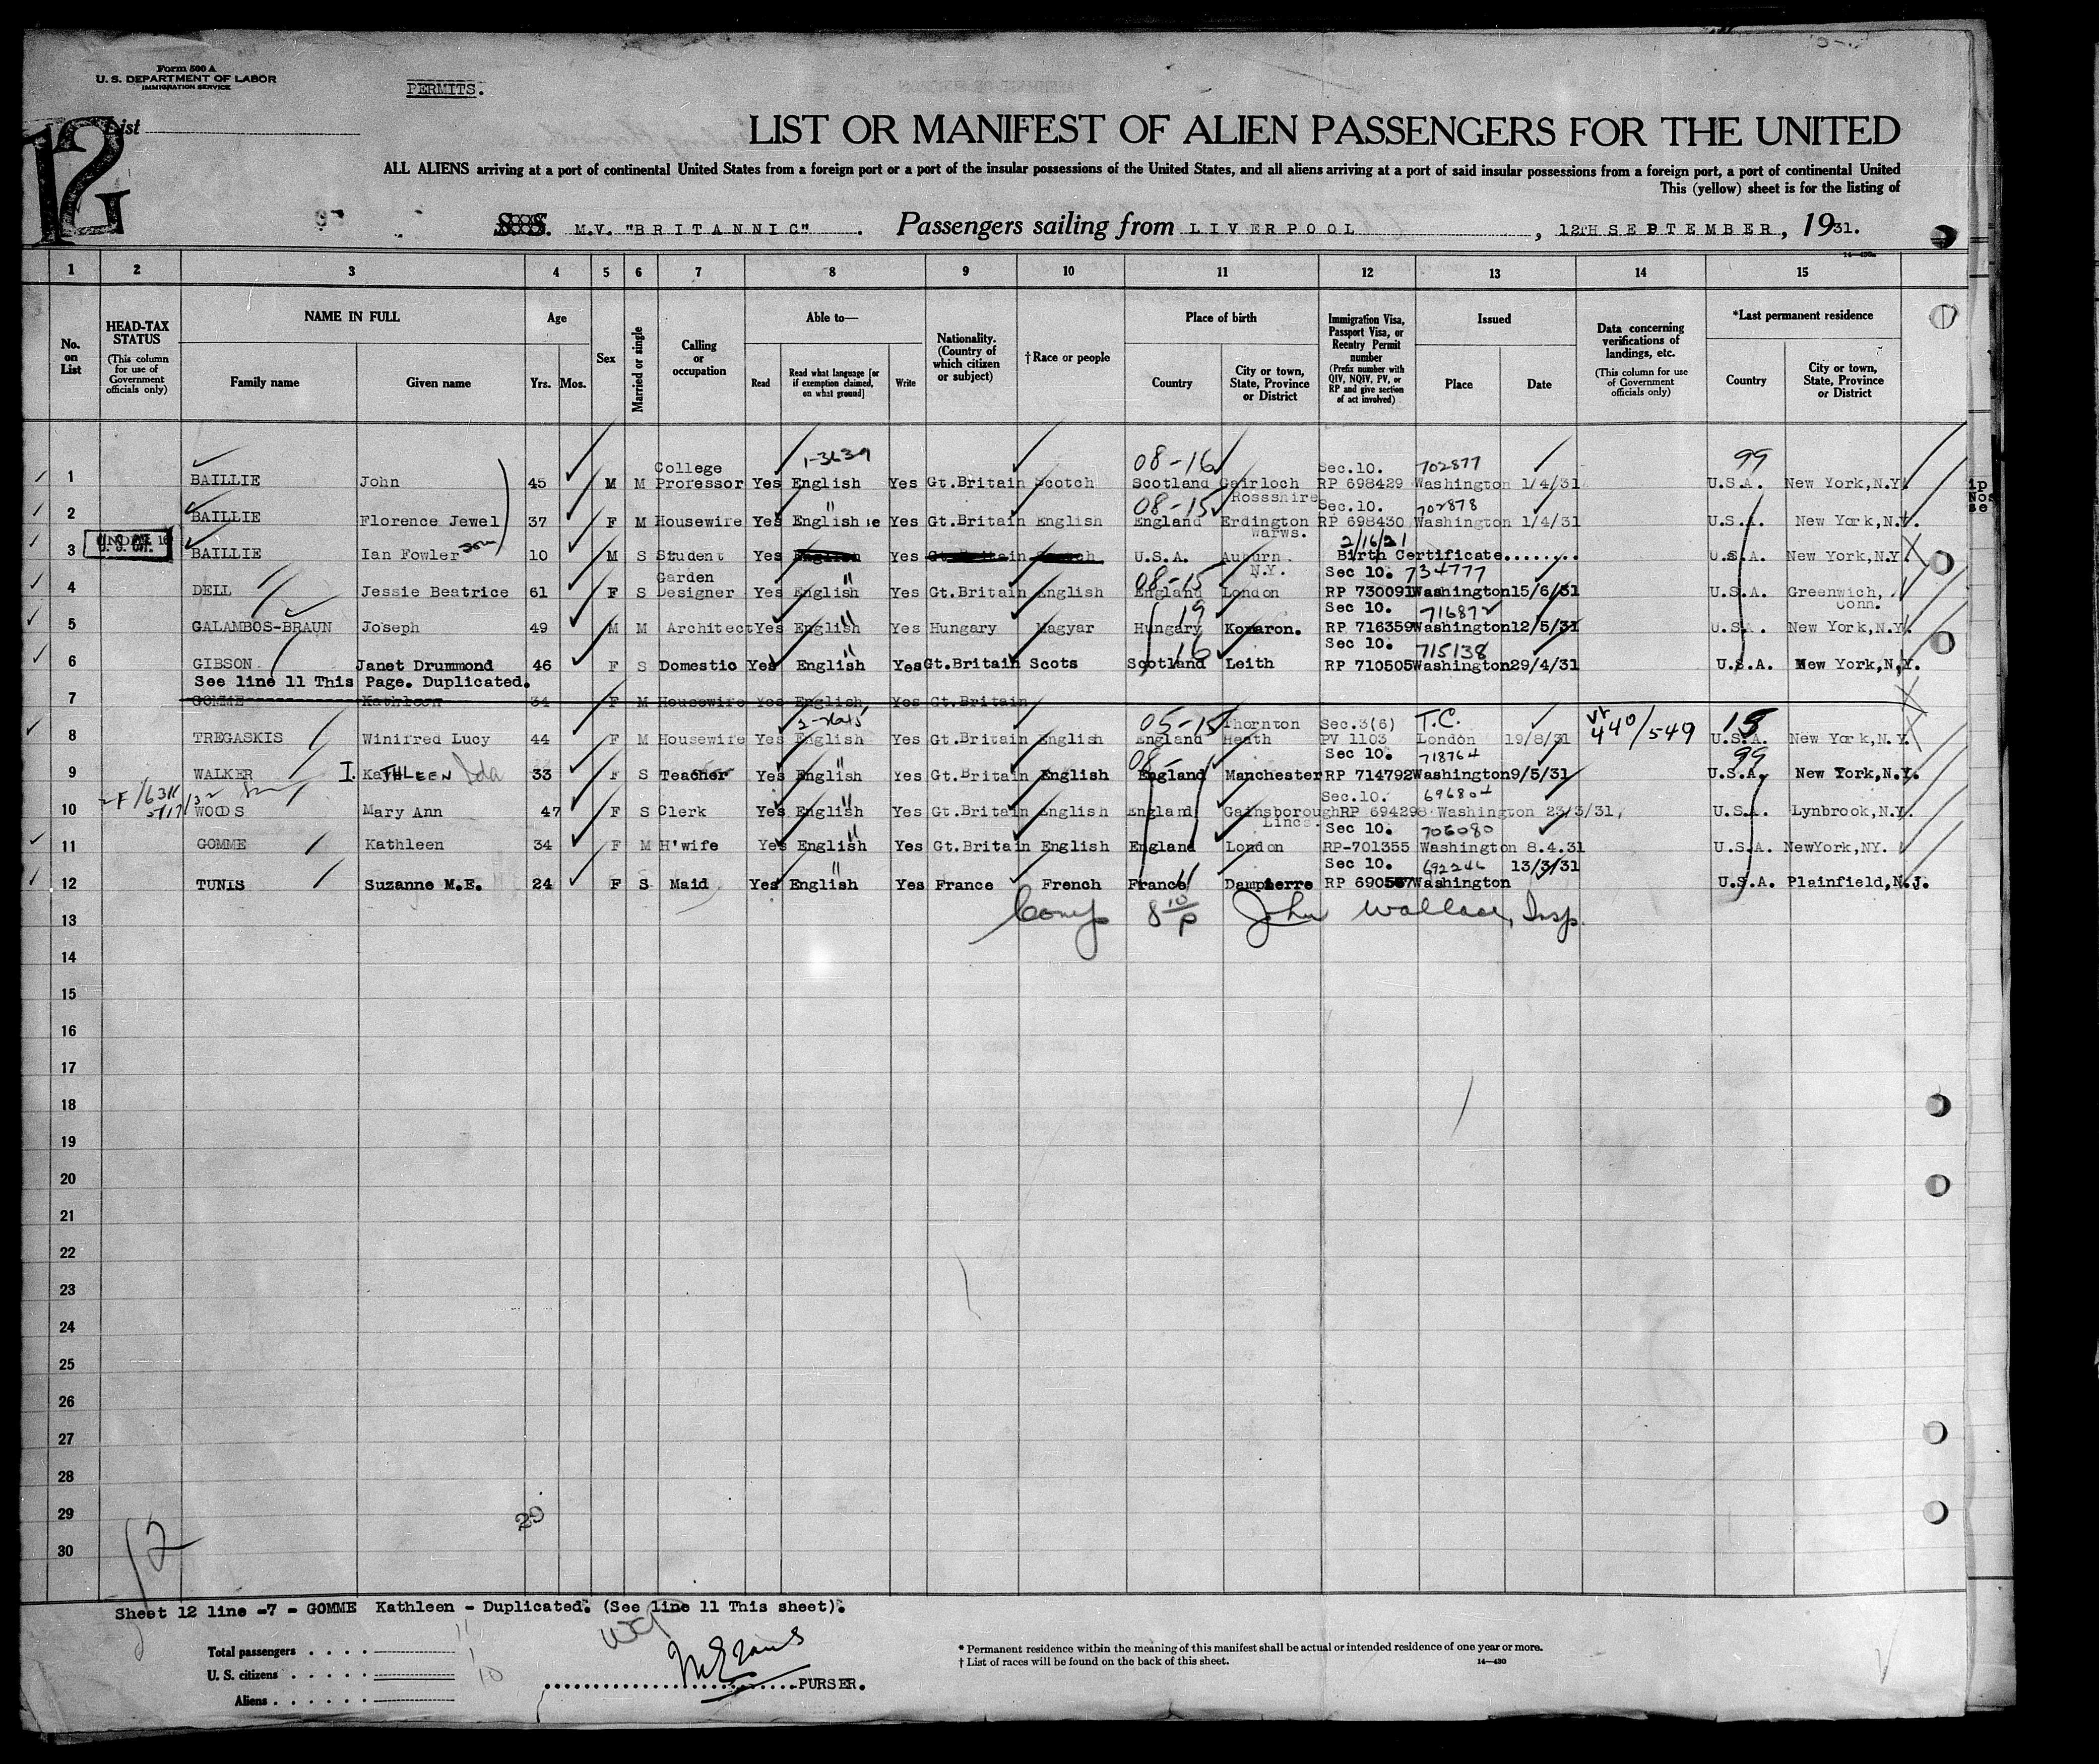 Form 500 A
U. S. DEPARTMENT OF LABOR
IMMIGRATION SERVICE
PERMITS.
12
List
LIST OR MANIFEST OF ALIEN PASSENGERS FOR THE UNITED
ALL ALIENS arriving at a port of continental United States from a foreign port or a port of the insular possessions of the United States, and all aliens arriving at a port of said insular possessions from a foreign port, a port of continental United
This (yellow) sheet is for the listing of
S.S. M.V. "BRITANNIC". Passengers sailing from LIVERPOOL, 12TH SEPTEMBER, 1931.
14—430a
1 2 3 4 5 6 7 8 9 10 11 12 13 14 15
No. on List
HEAD-TAX STATUS
(This column for use of Government officials only)
NAME IN FULL
Family name Given name
Age
Yrs. Mos.
Sex
Married or single
Calling or occupation
Able to—
Read Read what language [or if exemption claimed, on what ground] Write
Nationality. (Country of which citizen or subject)
†Race or people
Place of birth
Country City or town, State, Province or District
Immigration Visa, Passport Visa, or Reentry Permit number
(Prefix number with QIV, NQIV, PV, or RP and give section of act involved)
Issued
Place Date
Data concerning verifications of landings, etc.
(This column for use of Government officials only)
*Last permanent residence
Country City or town, State, Province or District
1-3639 08-16 702877 99
1 BAILLIE John 45 M M College Professor Yes English Yes Gt.Britain Scotch Scotland Gairloch Rossshire Sec.10. RP 698429 Washington 1/4/31 U.S.A. New York,N.Y.
08-15 702878
2 BAILLIE Florence Jewel 37 F M Housewife Yes English Yes Gt.Britain English England Erdington Warws. Sec.10. RP 698430 Washington 1/4/31 U.S.A. New York,N.Y.
UNDER 16
U. S. CIT.
2/16/21
3 BAILLIE Ian Fowler son 10 M S Student Yes English Yes Gt.Britain Scotch U.S.A. Auburn N.Y. Birth Certificate........ U.S.A. New York,N.Y.
08-15 734777
4 DELL Jessie Beatrice 61 F S Garden Designer Yes English Yes Gt.Britain English England London Sec 10. RP 730091 Washington 15/6/31 U.S.A. Greenwich, Conn.
19 716872
5 GALAMBOS-BRAUN Joseph 49 M M Architect Yes English Yes Hungary Magyar Hungary Komaron. Sec 10. RP 716359 Washington 12/5/31 U.S.A. New York,N.Y.
16 715138
6 GIBSON Janet Drummond 46 F S Domestic Yes English Yes Gt.Britain Scots Scotland Leith Sec 10. RP 710505 Washington 29/4/31 U.S.A. New York,N.Y.
See line 11 This Page. Duplicated.
7 GOMME Kathleen 34 F M Housewife Yes English Yes Gt.Britain
2-2645 05-15 T.C. 440/549 15
8 TREGASKIS Winifred Lucy 44 F M Housewife Yes English Yes Gt.Britain English England Thornton Heath Sec.3(6) PV 1103 London 19/8/31 U.S.A. New York,N.Y.
08- 718764 99
9 WALKER I. KATHLEEN Ida 33 F S Teacher Yes English Yes Gt.Britain English England Manchester Sec 10. RP 714792 Washington 9/5/31 U.S.A. New York,N.Y.
696804
10 WOODS Mary Ann 47 F S Clerk Yes English Yes Gt.Britain English England Gainsborough Lincs. Sec.10. RP 694298 Washington 23/3/31, U.S.A. Lynbrook,N.Y.
706080
11 GOMME Kathleen 34 F M H'wife Yes English Yes Gt.Britain English England London Sec 10. RP-701355 Washington 8.4.31 U.S.A. NewYork,NY.
692246
12 TUNIS Suzanne M.E. 24 F S Maid Yes English Yes France French France Dampierre Sec 10. RP 690567 Washington 13/3/31 U.S.A. Plainfield,N.J.
13 Comp 8 10/p John Wallace, Insp.
14
15
16
17
18
19
20
21
22
23
24
25
26
27
28
29 20
30
12
Sheet 12 line -7 - GOMME Kathleen - Duplicated. (See line 11 This sheet).
Total passengers 11
U. S. citizens 1
Aliens 10
PURSER.
* Permanent residence within the meaning of this manifest shall be actual or intended residence of one year or more.
† List of races will be found on the back of this sheet.
14—430